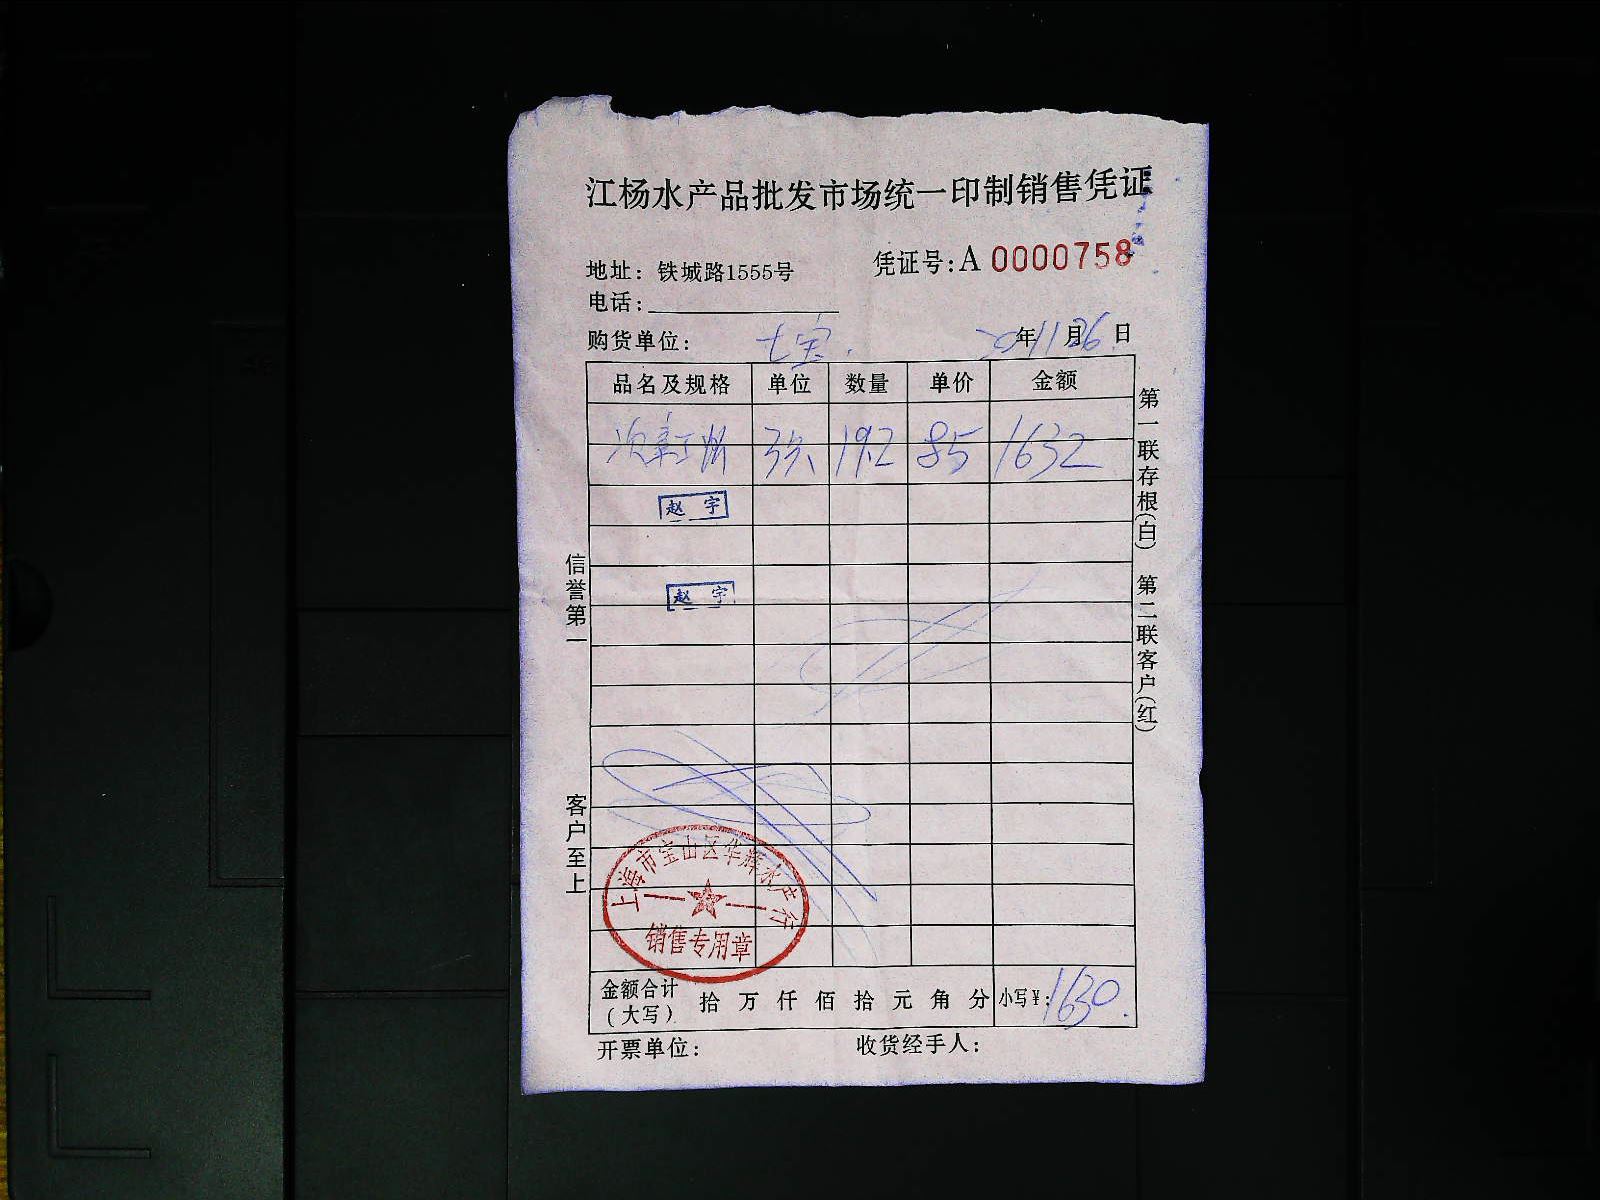 江杨水产品批发市场统一印制销售凭证
地址：铁城路1555号
凭证号：A 0000758
电话：
购货单位：七宝.
20 年 11 月 26 日
品名及规格 单位 数量 单价 金额
19.2 85 1632
赵 宇
赵 宇
上海市宝山区华辉水产行
销售专用章
金额合计（大写） 拾 万 仟 佰 拾 元 角 分 小写¥：1630.
开票单位： 收货经手人：
信誉第一 客户至上
第一联存根（白） 第二联客户（红）